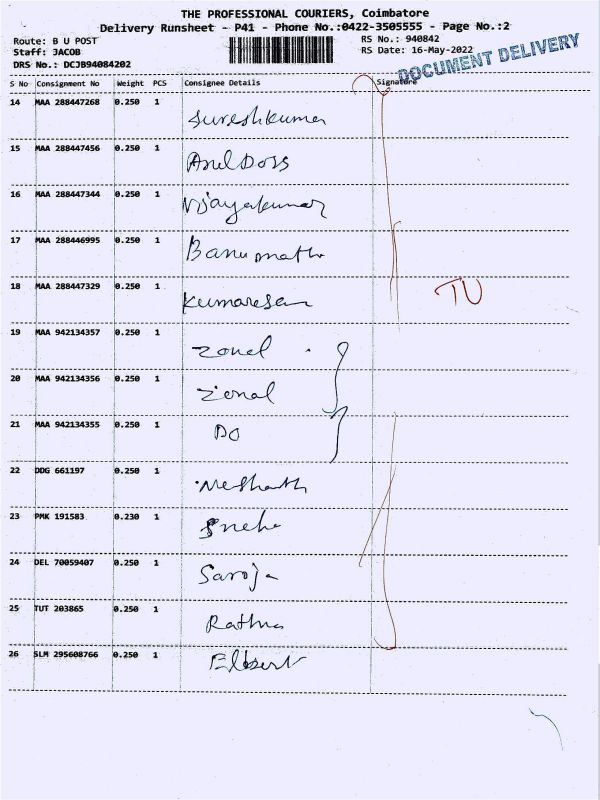 THE PROFESSIONAL COURIERS, Coimbatore
Delivery Runsheet - P41 - Phone No.:0422-3505555 - Page No.:2
Route: B U POST
Staff: JACOB
DRS No.: DCJB94084202
RS No.: 940842
RS Date: 16-May-2022
DOCUMENT DELIVERY
S No Consignment No Weight PCS Consignee Details Signature
14 MAA 288447268 0.250 1 Sureshkumar
15 MAA 288447456 0.250 1 Arul Doss
16 MAA 288447344 0.250 1 Vijayakumar
17 MAA 288446995 0.250 1 Banumathi
18 MAA 288447329 0.250 1 Kumaresan
TU
19 MAA 942134357 0.250 1 Zonal
20 MAA 942134356 0.250 1 Zonal
21 MAA 942134355 0.250 1 DO
22 DDG 661197 0.250 1
23 PMK 191583 0.230 1 Sneha
24 DEL 70059407 0.250 1 Saroja
25 TUT 203865 0.250 1 Rathna
26 SLM 295608766 0.250 1